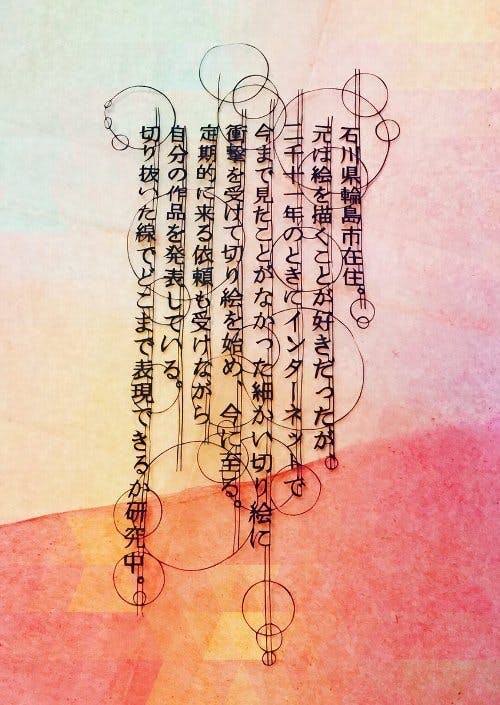 石川県輪島市在住。
元は絵を描くことが好きだったが
二千十一年のときにインターネットで
今まで見たことがなかった細かい切り絵に
衝撃を受けて切り絵を始め、今に至る。
定期的に来る依頼も受けながら
自分の作品を発表している。
切り抜いた線でどこまで表現できるか研究中。